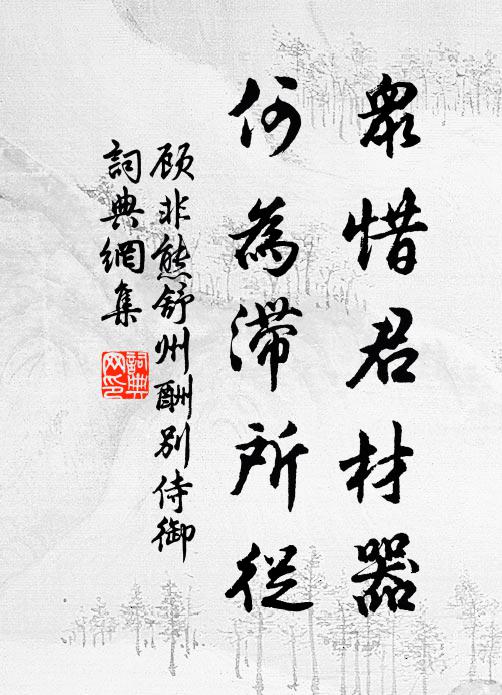 眾惜君材器
何為滯所從
顾非熊舒州酬别侍御
詞典網集
詞典网印